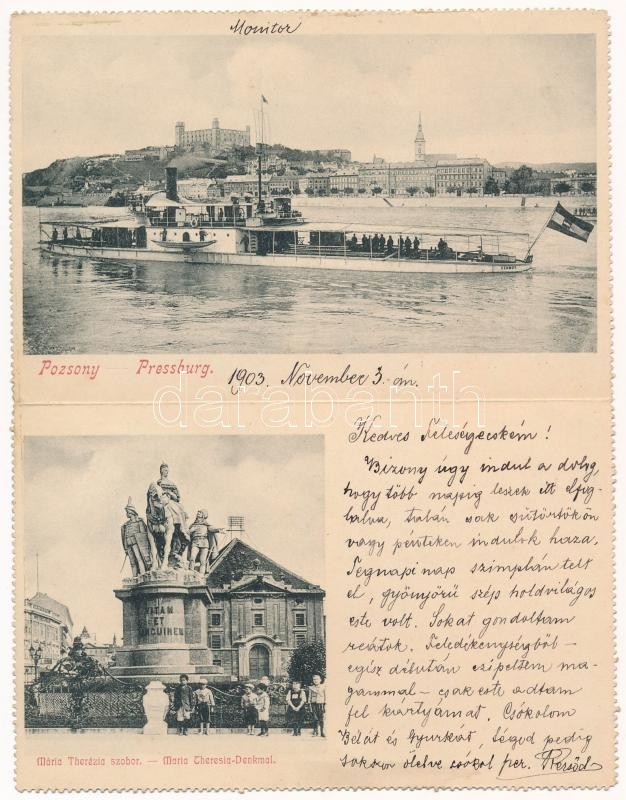 Monitor
Pozsony Pressburg.
1903. November 3.-án.
darabanth
Kedves Feleségecském!
Bizony úgy indul a dolog,
hogy több napig leszek itt elfog-
lalva, talán csak csütörtökön
vagy pénteken indulok haza.
Tegnapi nap szimplán telt
el, gyönyörű szép holdvilágos
este volt. Sokat gondoltam
reátok. Feledékenységből –
egész délután czipeltem ma-
gammal – csak este adtam
fel kártyámat. Csókolom
Bélát és Gyurkát, Téged pedig
sokszor ölelve csókol
VITAM
ET
SANGUINEM
Mária Therézia szobor. — Maria Theresia-Denkmal.